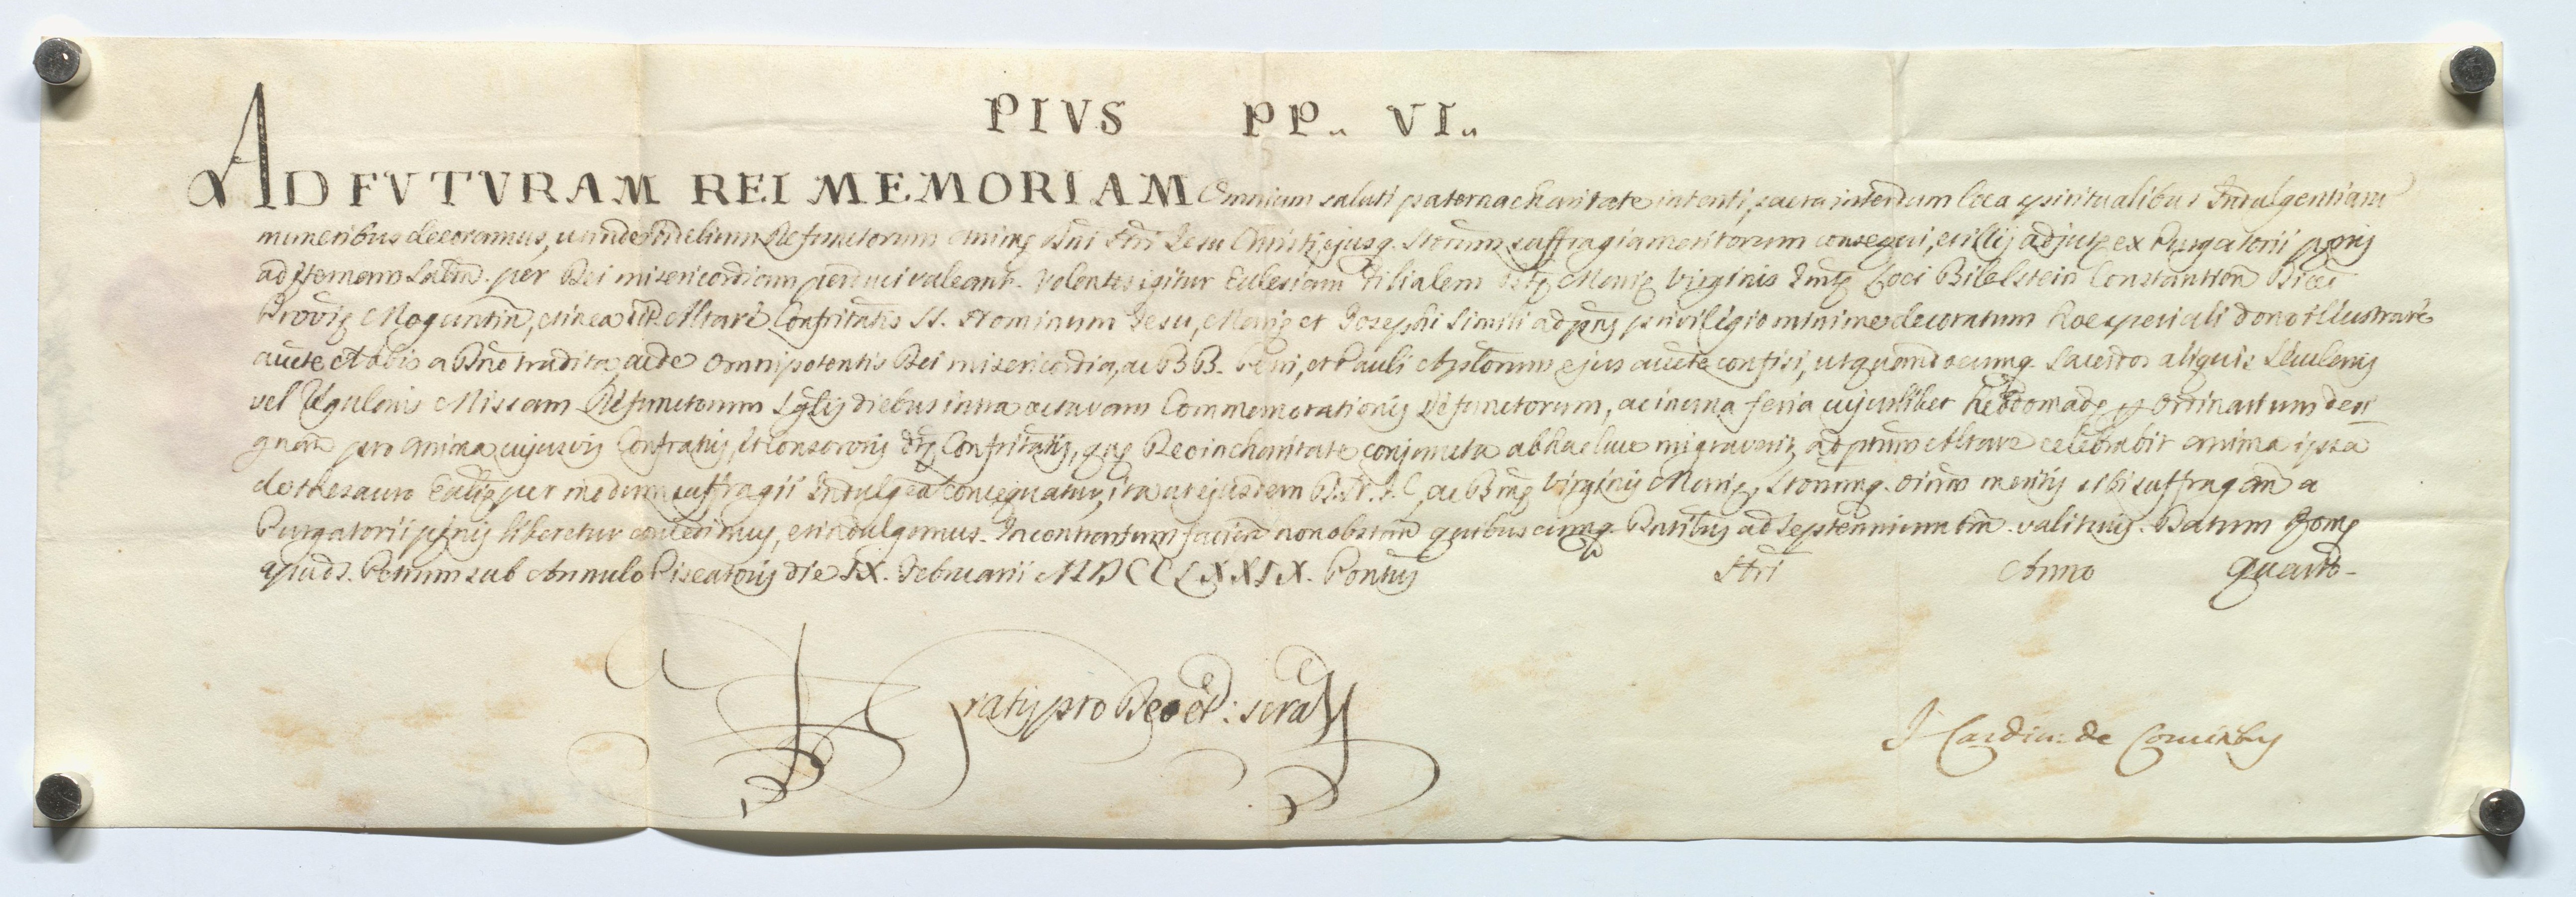 PIVS PP. VI.
AD FVTVRAM REI MEMORIAM Omnium saluti paterna charitate intenti, sacra interdum loca spiritualibus Indulgentiarum
muneribus decoramus, ut inde fidelium Defunctorum animę Dñi Ñri Jesu Christi, ejusq. Sctorum suffragia meritorum consequi, et illis adjutę ex Purgatorii pęnis
ad ęternam salutm. per Dei misericordiam perduci valeant. Volentes igitur Ecclesiam Filialem Btę Marię Virginis Loci Bibelstein Constantien Diœc
Provię Moguntin, et in ea Altare Confritatis SS. Nominum Jesu, Marię et Josephi simili ad pñs privilegio minime decoratum hoc speciali dono illustrare
aucte Nobis a Dño tradita, ac de Omnipotentis Dei misericordia, ac BB. Petri, et Pauli Aplorum ejus aucte confisi, ut quandocumq. Sacerdos aliquis Sęcularis
vel Regularis Missam Defunctorum sglis diebus infra octavam Commemorationis Defunctorum, ac in una feria cujuslibet hebdomadę p Ordinarium desi
gnan pro anima cujusvis Confratris, et Consororis dtę Confritatis, quę Deo in charitate conjuncta ab hac luce migraverit, ad ptum Altare celebrabit anima ipsa
de thesauro Ecclię per modum suffragii Indulgeã consequatur, ita ut ejusdem D. N. J. C., ac Bmę Virginis Marię, Sctorumq. oium meritis sibi suffragan a
Purgatorii pęnis liberetur concedimus, et indulgemus. In contrarium facien non obstan quibuscumq. Pntibus ad Septennium tm. valituris. Datum Romę
apud S. Petrum sub Annulo Piscatoris die IX. Februarii MDCCLXXIX. Pontus Ñri Anno Quarto.
Gratis pro Deo et: scra
J Cardin: de Comitibus